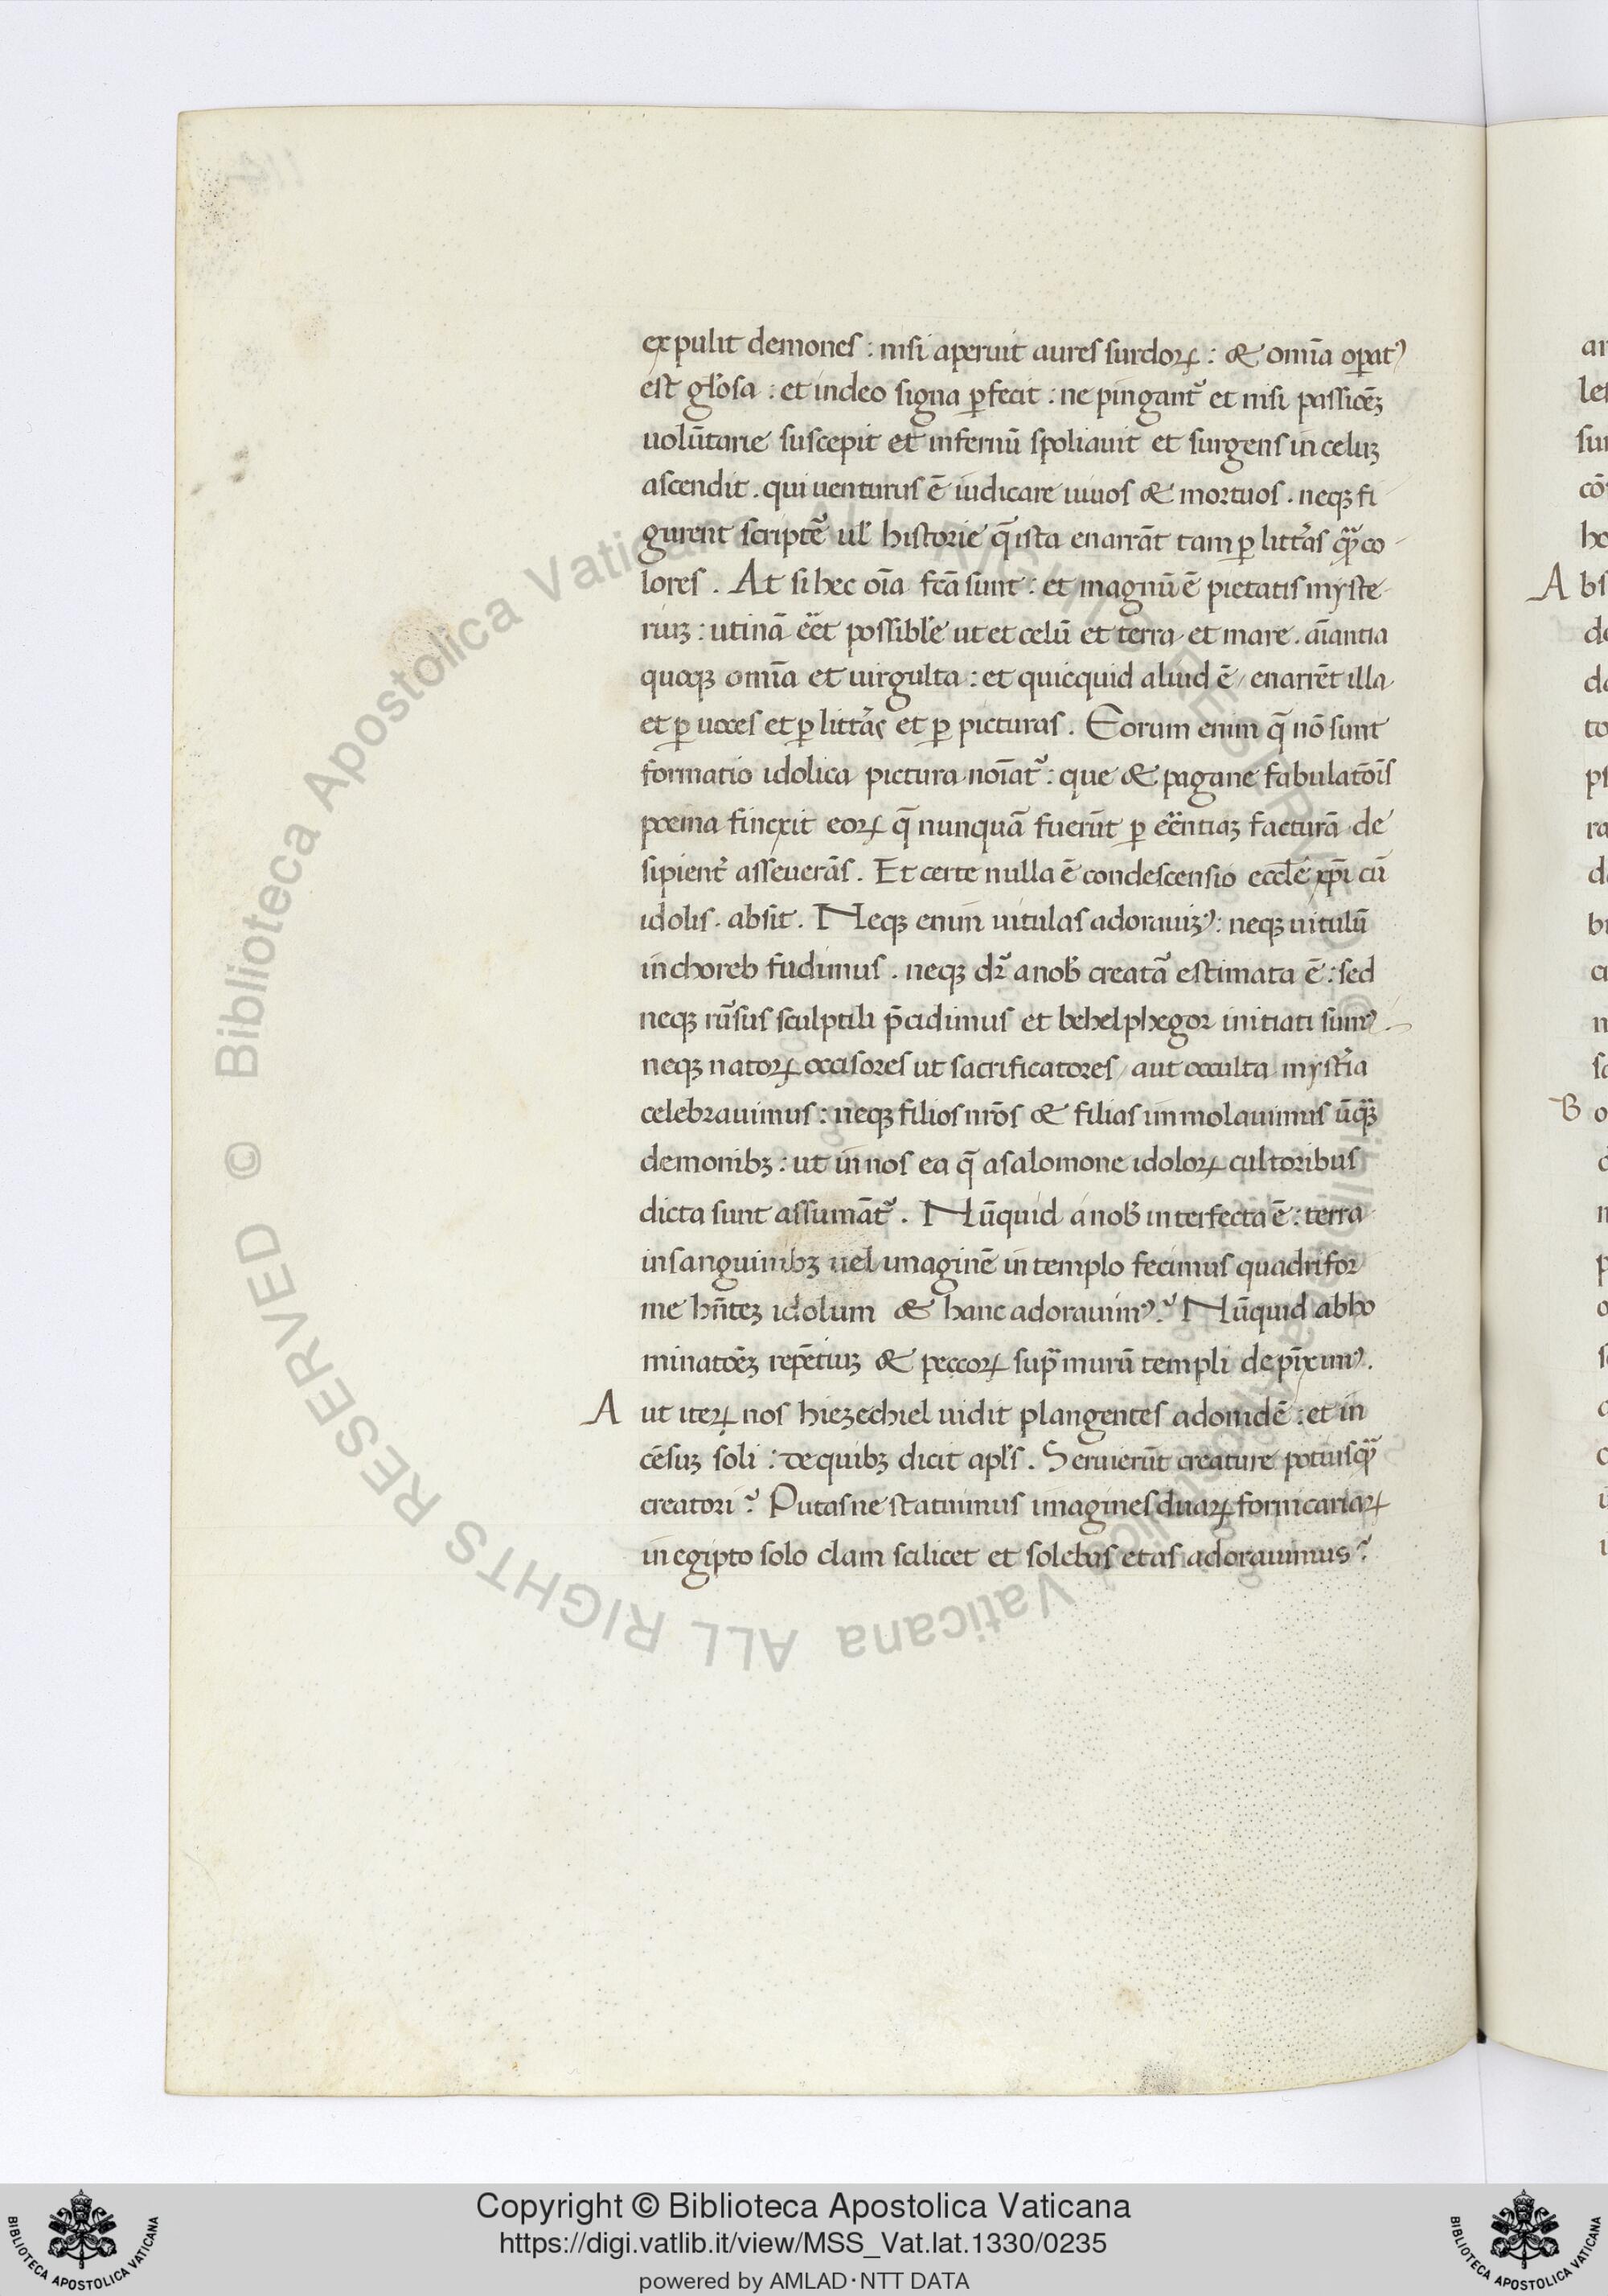 expulit demones : nisi aperuit aures surdoꝝ : & om̄ia oꝑatꝰ
est gl̓osa : et indeo signa ꝑfecit : ne pingant᷑ et nisi passioēꝫ
uolūtarie suscepit et infernū spoliauit et surgens in celuꝫ
ascendit . qui uenturus ē iudicare uiuos & mortuos . neqꝫ fi
gurent scripte᷑ ul̓ historie q̄ ista enarrāt tam ꝑ litt̓as qᷓꝫ co
lores . At si hec oı̄a fcā sunt : et magnū ē pietatis myste
riuꝫ : utinā eēt possibl̓e ut et celū et terra et mare . aı̄antia
quoqꝫ om̄ia et uirgulta : et quicquid aliud ē / enarrēt illa
et ꝑ uoces et ꝑ litt̓as et ꝑ picturas . Eorum enim q̄ nō sunt
formatio idolica pictura noı̄at᷑ : que & pagane fabulatōı̄s
poema finxit eoꝝ q̄ nunquā fuerūt ꝑ eēntiaꝫ facturā de
sipient̓ asseuerās . Et certe nulla ē condescensio eccl̄e xp̄i cū
idolis . absit . Neqꝫ enim uitulas adorauiꝫꝰ : neqꝫ uitulū
in choreb fudimus . neqꝫ dr᷑ a nob̓ creatā estimata ē : sed
neqꝫ rūsus sculptili p̄cidimus et behelphegor initiati sumꝰ .
neqꝫ natoꝝ occisores ut sacrificatores / aut occulta myst̓ia
celebrauimus : neqꝫ filios nr̄os & filias immolauimus ūqᷓꝫ
demonibꝫ : ut in nos ea q̄ a salomone idoloꝝ cultoribus
dicta sunt assumāt᷑ . Nūquid a nob̓ interfecta ē : terra
in sanguinibꝫ uel imaginē in templo fecimus quadrifor
me hn̄teꝫ idolum & hanc adorauimꝰ ? Nūquid abho
minatōeꝫ repētiuꝫ & peccoꝝ supᷓ murū templi depı̄ximꝰ .
Aut iteꝝ nos hiezechiel uidit plangentes adonidē : et in
cēsuꝫ soli : de quibꝫ dicit apl̓s . Seruierūt creature potiusqᷓꝫ
creatori ? Putasne statuimus imagines duaꝝ fornicariaꝝ
in egipto solo clam scilicet et solebas etas adorauimus ?
ar
let
sun
cō
ho
A bs
de
to
ps
ra
bi
B o
© Biblioteca Apostolica Vaticana ALL RIGHTS RESERVED
Copyright © Biblioteca Apostolica Vaticana
https://digi.vatlib.it/view/MSS_Vat.lat.1330/0235
powered by AMLAD·NTT DATA
BIBLIOTECA APOSTOLICA VATICANA
BIBLIOTECA APOSTOLICA VATICANA